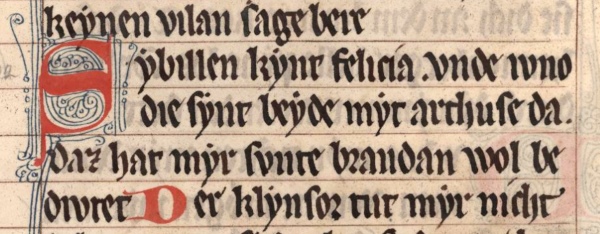 keynen vilan sage bere
Sybillen kynt felicia . vnde iuno
die synt beyde myt arthuse da.
daz hat myr synte brandan wol be
diutet Der klynsor tut myr nicht